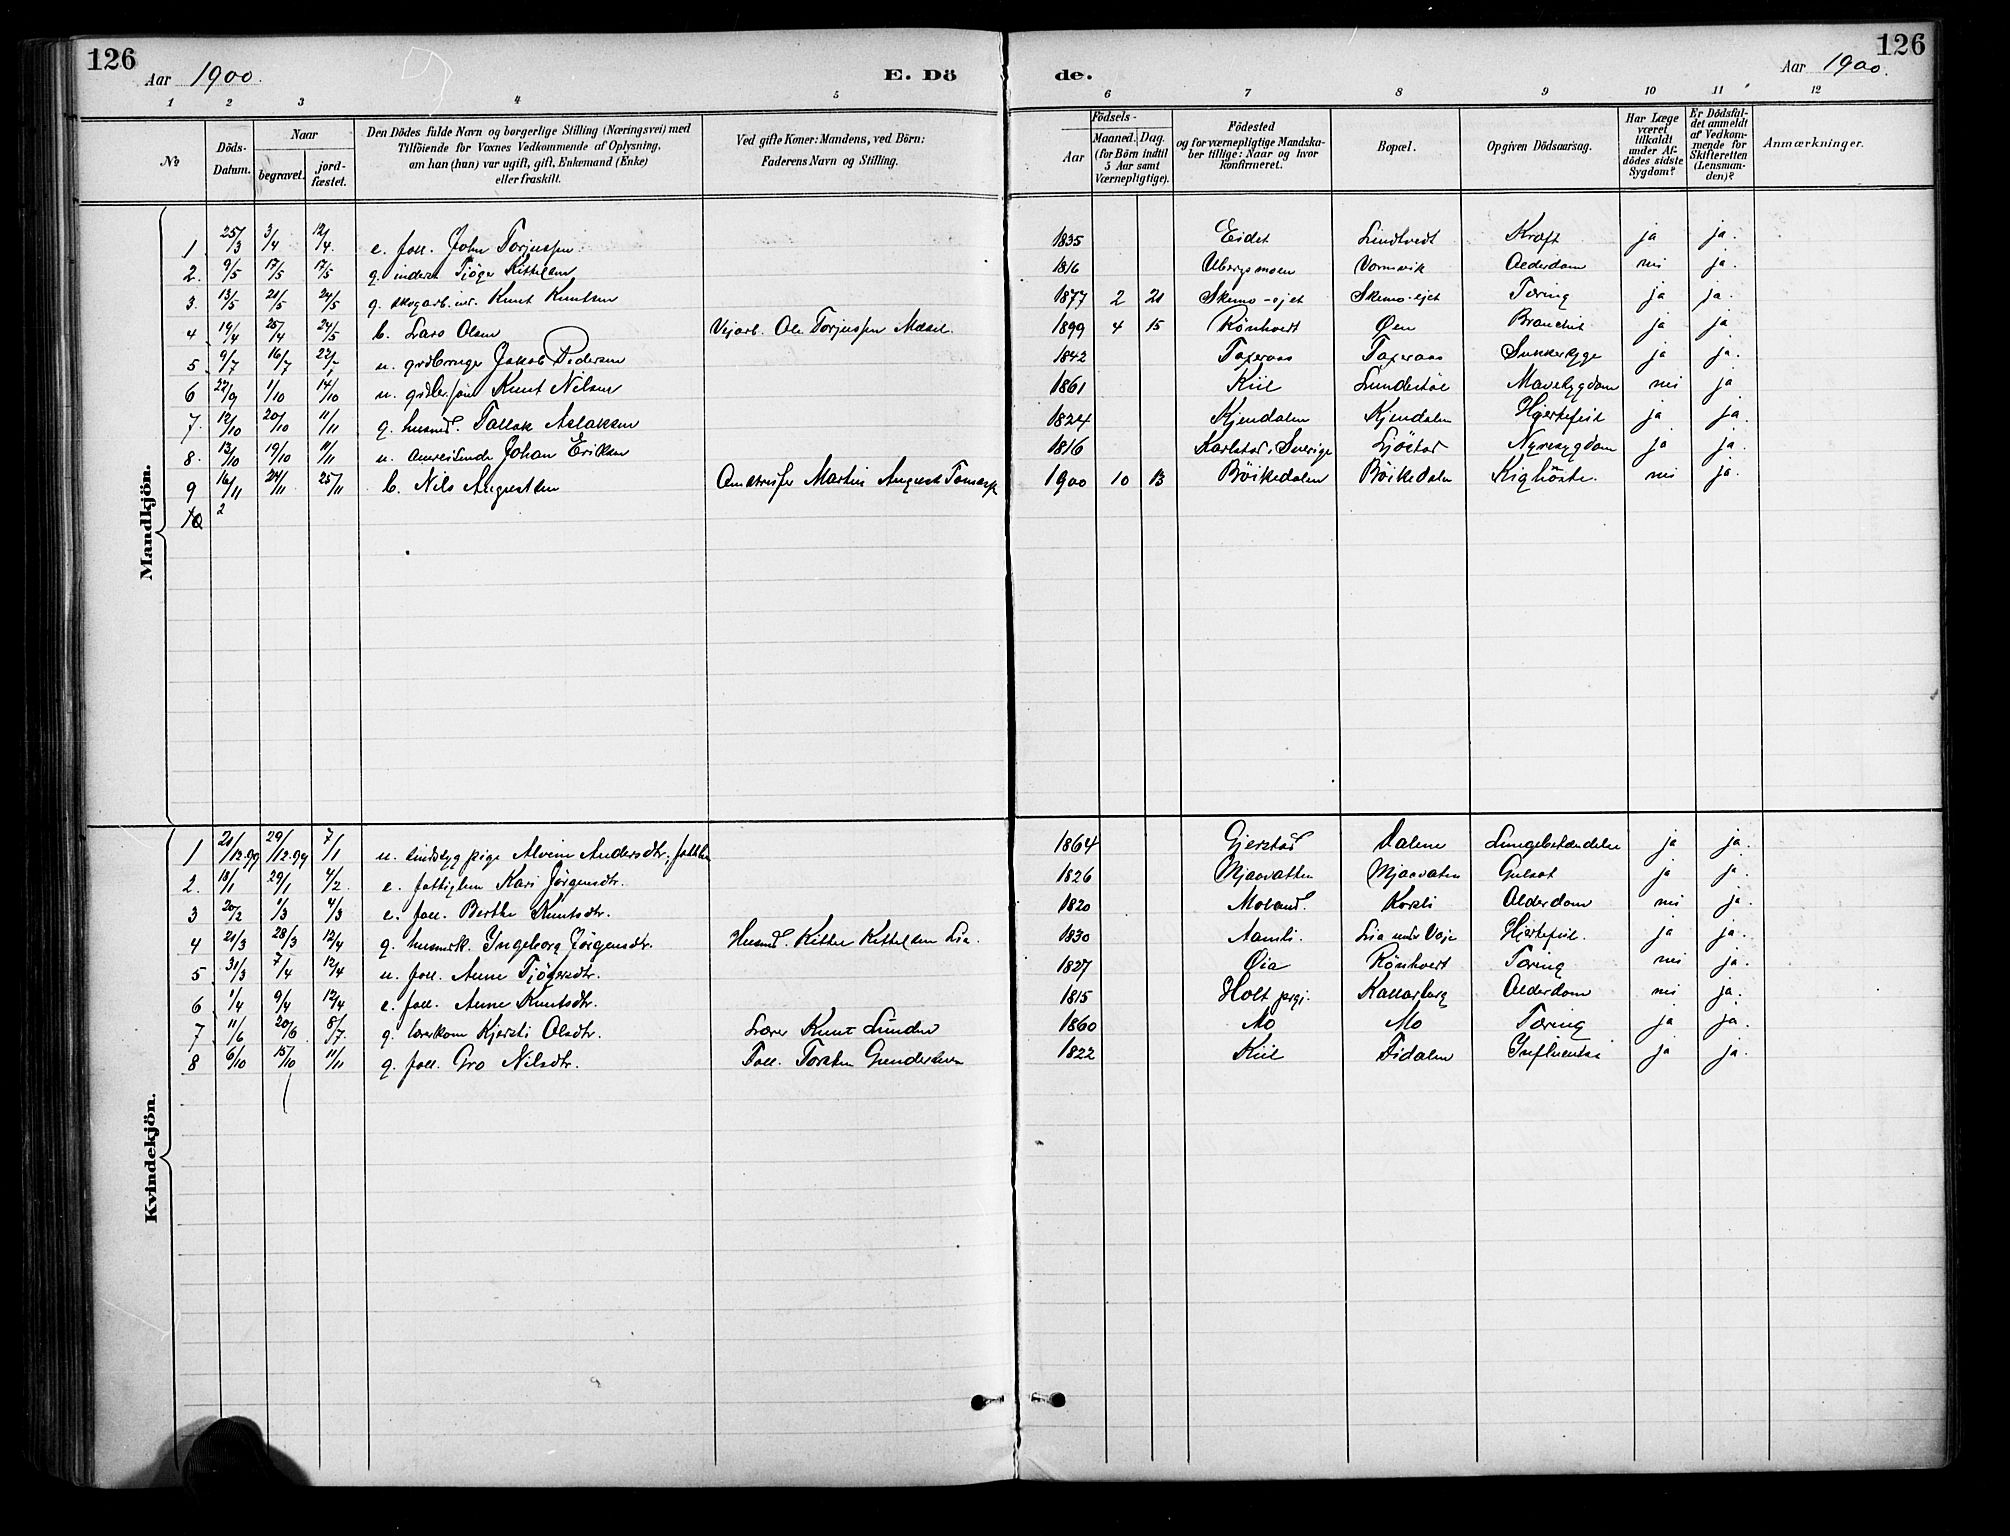 126
Aar 1900.
E. Dö
de.
Aar 1900.
126
1 2 3 4 5 6 7 8 9 10 11 12
No
Döds-Datum.
Naar
begravet.
jord-fæstet.
Den Dödes fulde Navn og borgerlige Stilling (Næringsvei) med
Tilföiende for Voxnes Vedkommende af Oplysning,
om han (hun) var ugift, gift, Enkemand (Enke)
eller fraskilt.
Ved gifte Koner: Mandens, ved Börn:
Faderens Navn og Stilling.
Födsels-
Aar
Maaned. Dag.
(for Börn indtil
5 Aar samt
Værnepligtige).
Födested
og for værnepligtige Mandska-
ber tillige: Naar og hvor
konfirmeret.
Bopæl.
Opgiven Dödsaarsag.
Har Læge
været
tilkaldt
under Af-
dödes sidste
Sygdom?
Er Dödsfal-
det anmeldt
af Vedkom-
mende for
Skifteretten
(Lensman-
den)?
Anmærkninger.
Mandkjön.
1. 25/3 3/4 12/4. e. foll. John Torjussen 1835 Eidet Lindtvedt Kræft ja ja.
2. 9/5 17/5 17/5 g. inderst Tjöge Kittelsen 1816 Ubergsmoen Vormvik Alderdom nei ja.
3. 13/5 21/5 24/5 g. skogarb. Knut Knutsen 1877 2 21 Skemo-ejet Skemo-ejet Tæring ja ja.
4 19/4 25/4 24/5 b. Lars Olsen Vejarb. Ole Torjussen 1899 4 15 Rönhvedt Øen ja ja
5. 9/7 16/7 u. Jakob Pedersen 1842 Taxeraas Taxeraas Sukkersyge ja ja.
6 22/9 1/10 14/10 u. Knut Nilsen 1861 Kiil Mavesygdom nei ja
7. 12/10 20/10 11/11 g. husmd. Tallak Aslaksen 1824 Kjendalen Kjendalen Hjertefeil ja ja.
8. 13/10 19/10 11/11 u. Johan Eriksen 1816 Karlstad, Sverige Ljöstad Nyresygdom ja ja.
9 16/11 24/11 25/11 b. Nils Augustsen Martin August 1900 10 13 Böikedalen Böikedalen Kighöste. nei ja.
10 2
Kvindekjön.
1 21/12.99 29/12.99 7/1 u. sindssyg pige Alvine Andersdtr. 1864 Gjerstad Dalene Lungebetændelse ja ja.
2. 18/1 29/1 4/2. e. fattiglem Kari Jörgensdtr. 1826 Mjaavatten Mjaavaten Gulsot ja ja.
3 20/2 1/3 4/3 e. foll. Berthe Knutsdtr. 1820 Moland. Alderdom nei ja.
4 21/3 28/3 12/4 g. husmk. Ingeborg Jörgensdtr. Husmd. Kittel Kittelsen Lia. 1830 Aamli. Lia under Hjertefeil. ja ja.
5 31/3 7/4 12/4 u. foll. Anne Tjögersdtr. 1827 Øia Rönhvedt Tæring nei ja.
6 1/4 9/4 12/4 e. foll. Anne Knutsdtr. 1815 Holt prgj. Alderdom nei ja.
7 11/6 20/6 8/7. g. lærerkone Kjersti Olsdtr. Lærer Knut Lunden 1860 Mo Mo Tæring ja ja.
8 6/10 15/10 11/11 g. foll. Gro Nilsdtr. Foll. Torsten Gundersen 1822 Kiil Fidalen Influentsa ja ja.